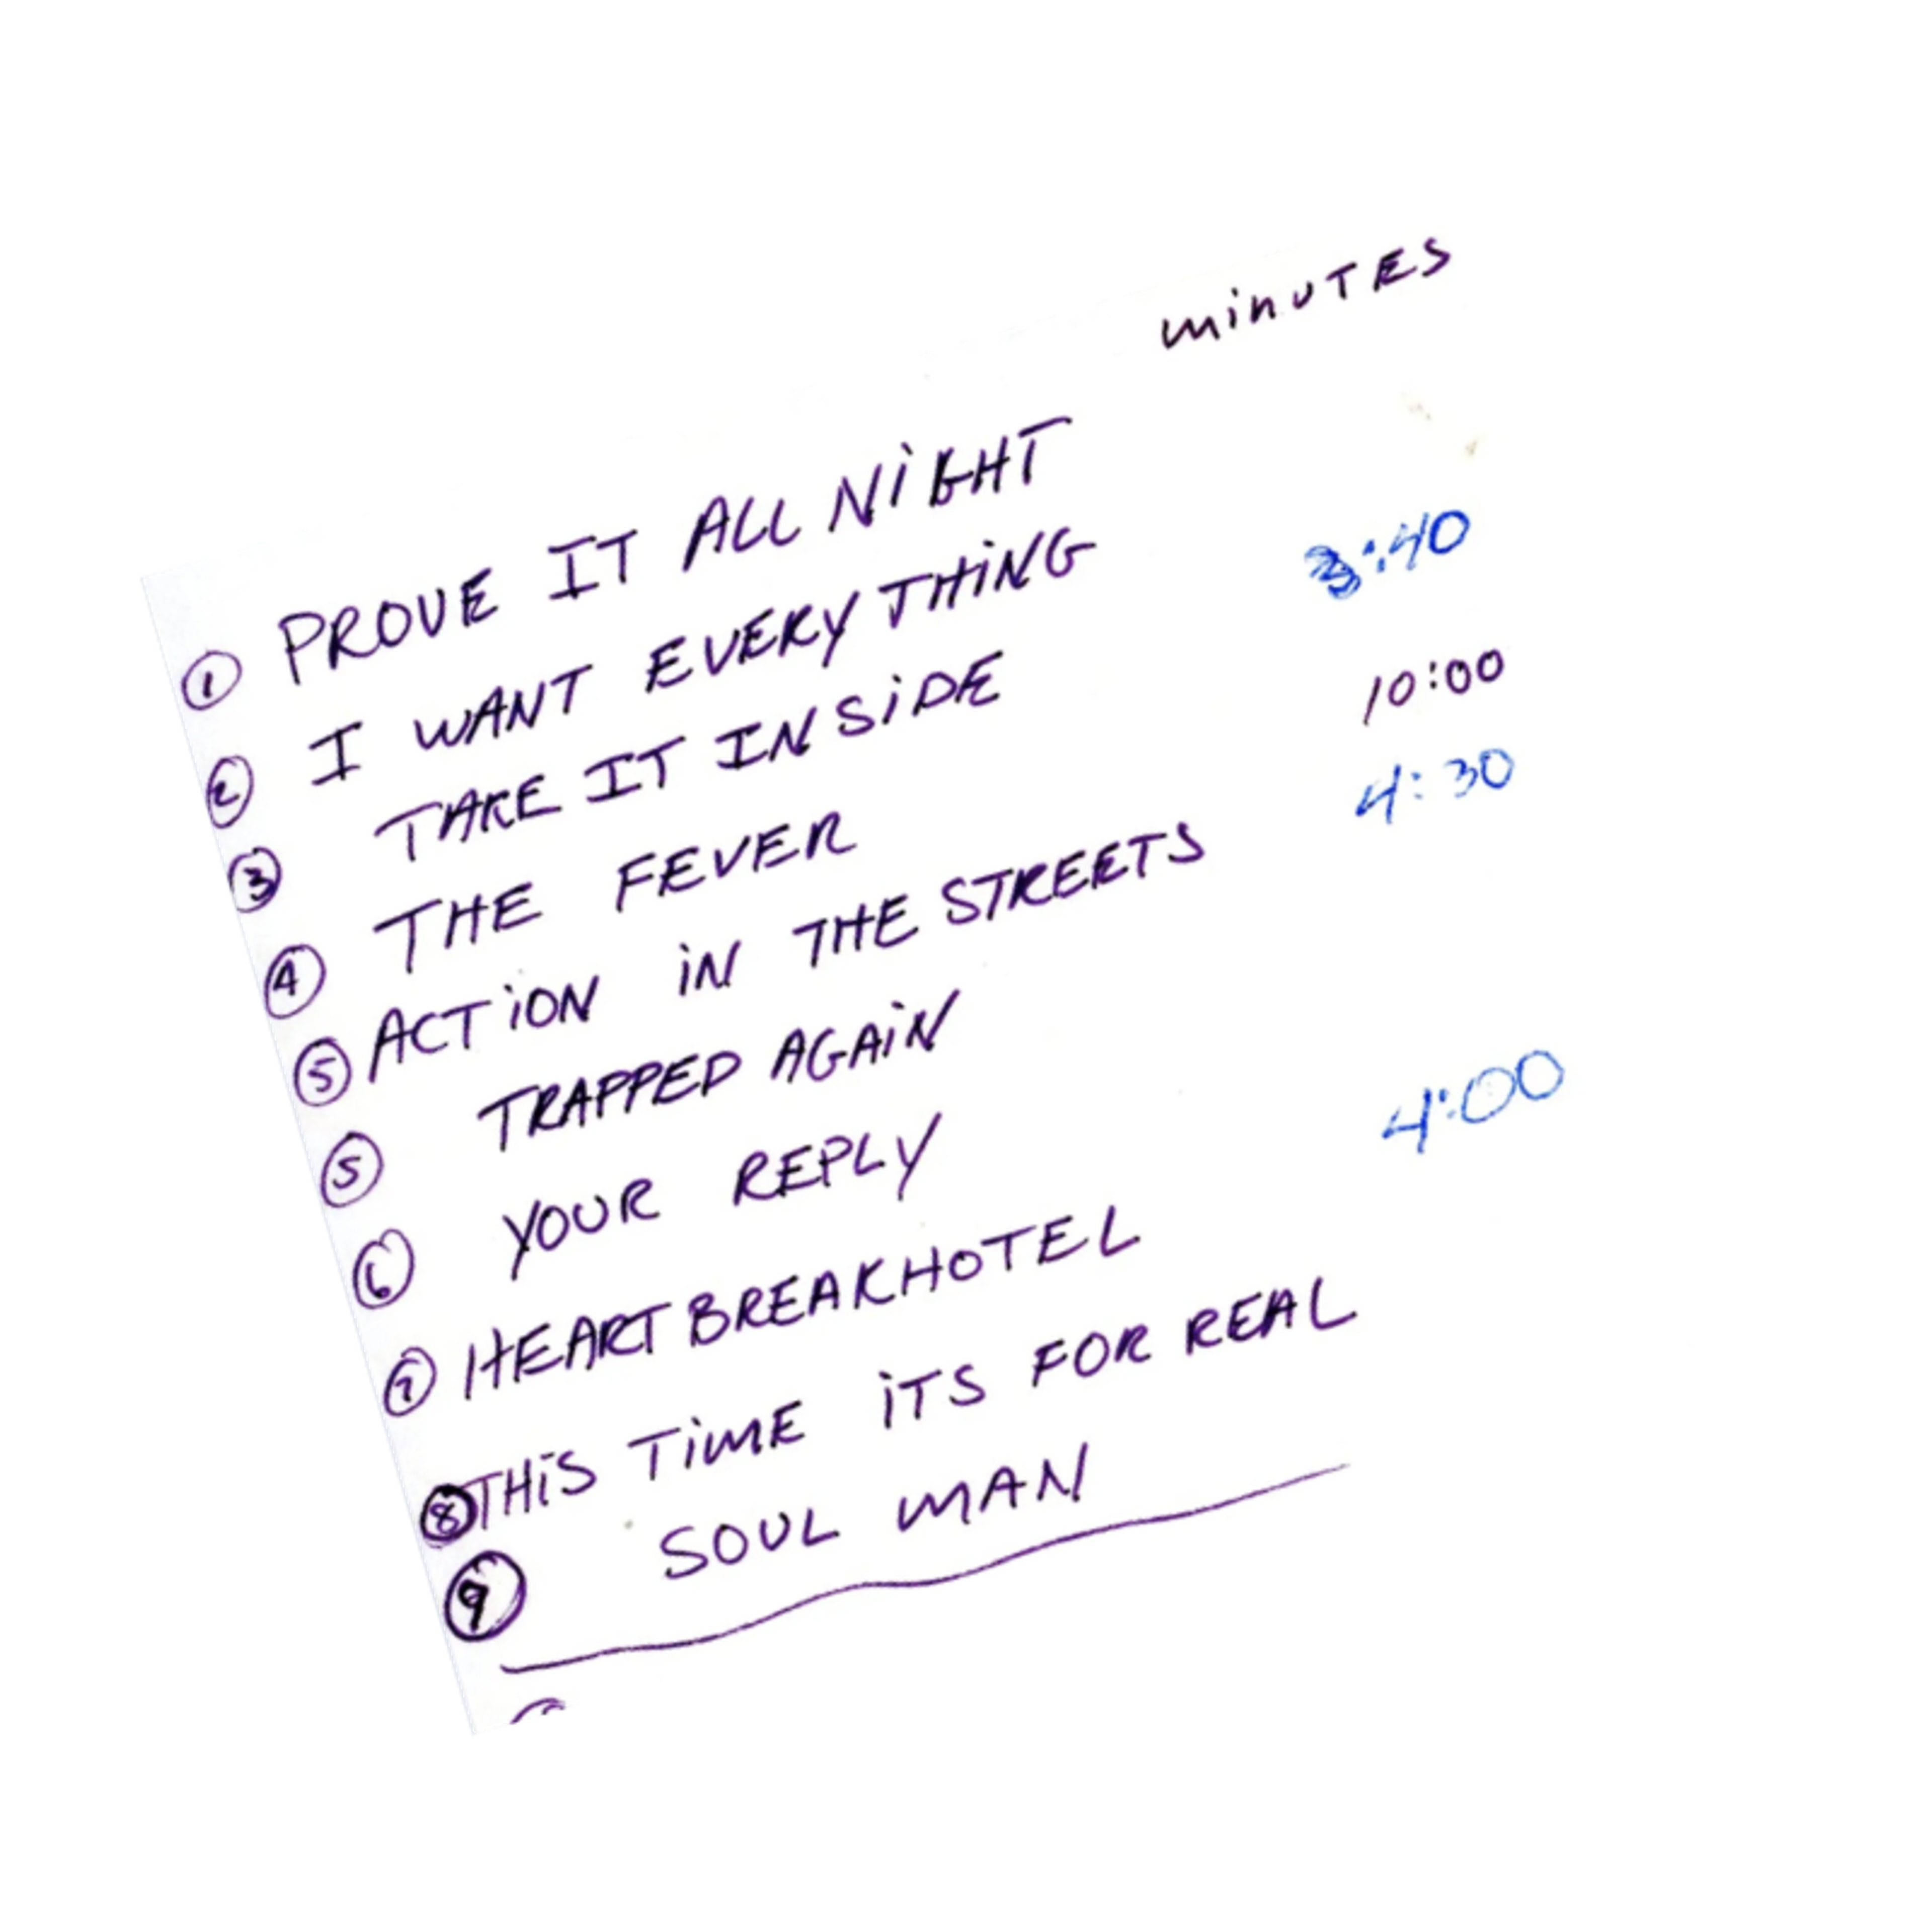 minUTES
① PROVE IT ALL NiGHT
② I WANT EVERY THiNG
③ TAKE IT INSiDE 3:40
④ THE FEVER 10:00
⑤ ACTiON iN THE STREETS 4:30
⑤ TRAPPED AGAiN
⑥ YOUR REPLY
⑦ HEARTBREAKHOTEL 4:00
⑧ THiS TiME iTS FOR REAL
⑨ SOUL MAN